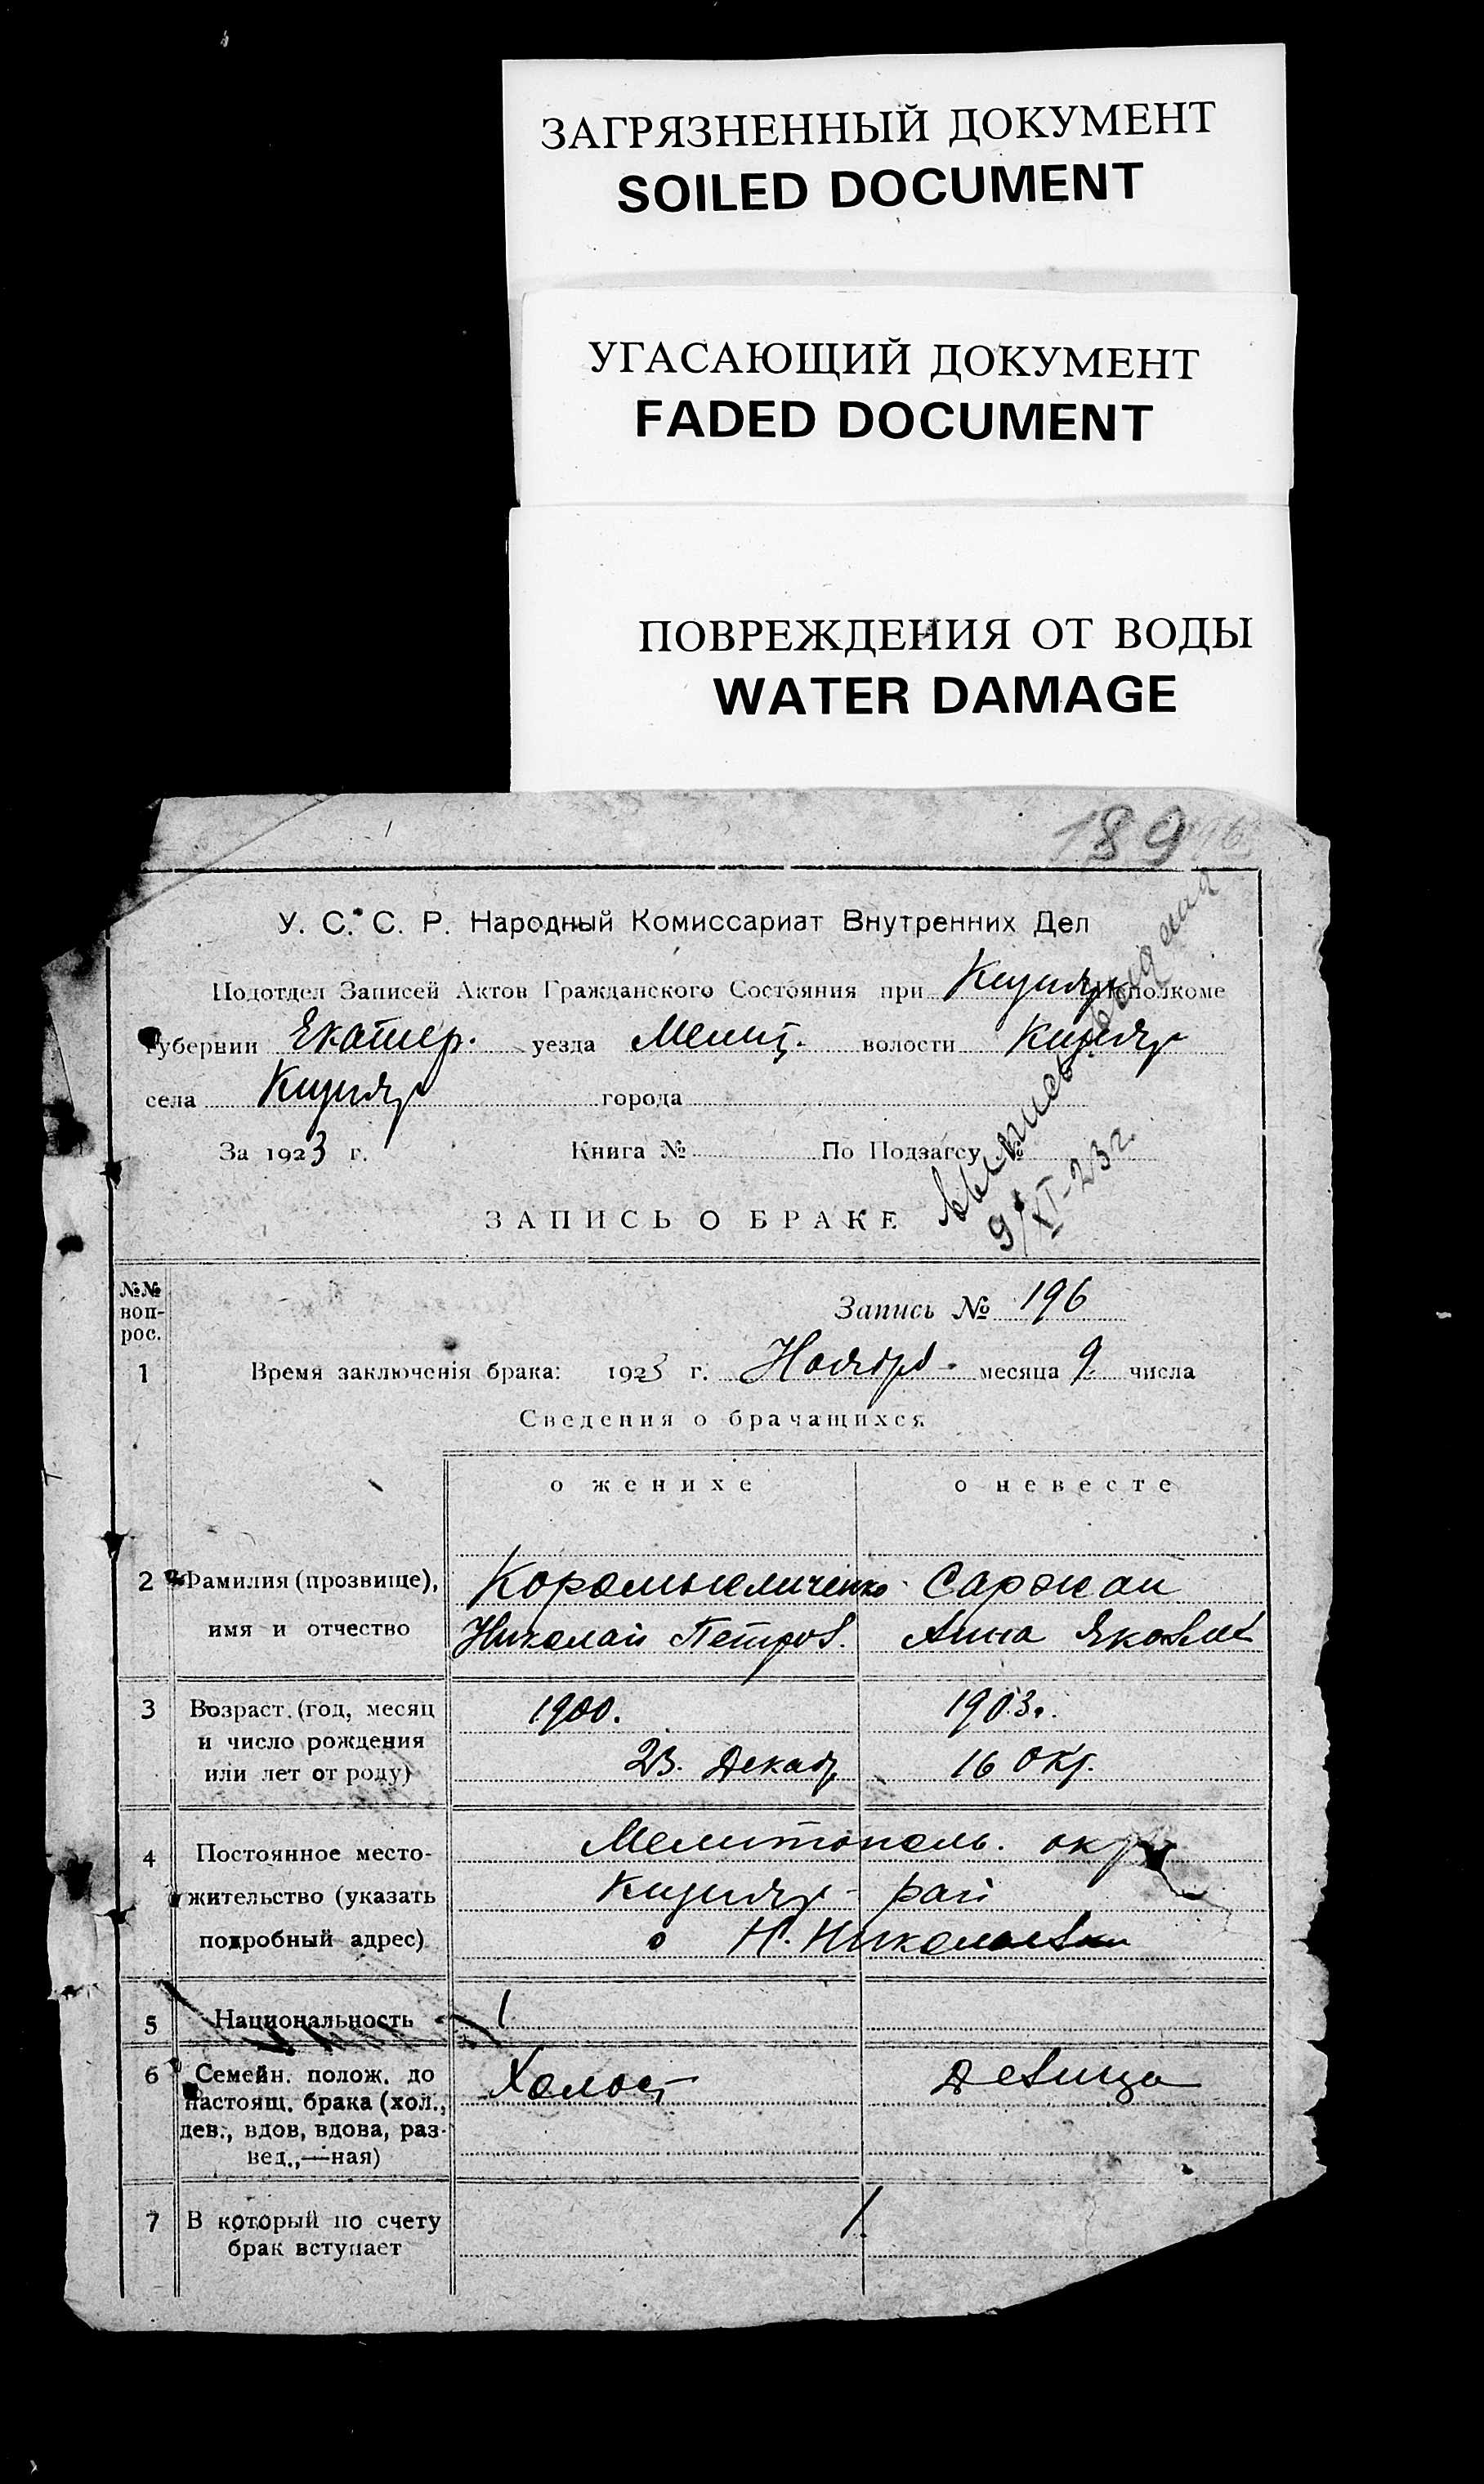 ЗАГРЯЗНЕННЫЙ ДОКУМЕНТ
SOILED DOCUMENT
УГАСАЮЩИЙ ДОКУМЕНТ
FADED DOCUMENT
ПОВРЕЖДЕНИЯ ОТ ВОДЫ
WATER DAMAGE
189
У. С. С. Р. Народный Комиссариат Внутренних Дел
Подотдел Записей Актов Гражданского Состояния при Кизияр Исполкоме
Губернии Екатер. уезда Мелит. волости Кизияр
села Кизияр города
За 1923 г. Книга № По Подзагсу №
выпись выдана
9/XI-23 г.
ЗАПИСЬ О БРАКЕ
№№ воп-
рос.
Запись № 196
1 Время заключенія брака: 1923 г. Ноября месяца 9 числа
Сведения о брачащихся
о женихе о невесте
2 Фамилия (прозвище), Коромысличенко Саржан
имя и отчество Николай Петров. Анна Яковл
3 Возраст (год, месяц 1900. 1903.
и число рождения
или лет от роду) 23. Декаб 16 Окт.
4 Постоянное место- Мелитополь. окр
жительство (указать Кизияр рай
подробный адрес) Н. Николаевки
5 Национальность
6 Семейн. полож. до Холост Девица
настоящ. брака (хол.,
дев., вдов, вдова, раз-
вед.,—ная)
7 В который по счету 1.
брак вступает